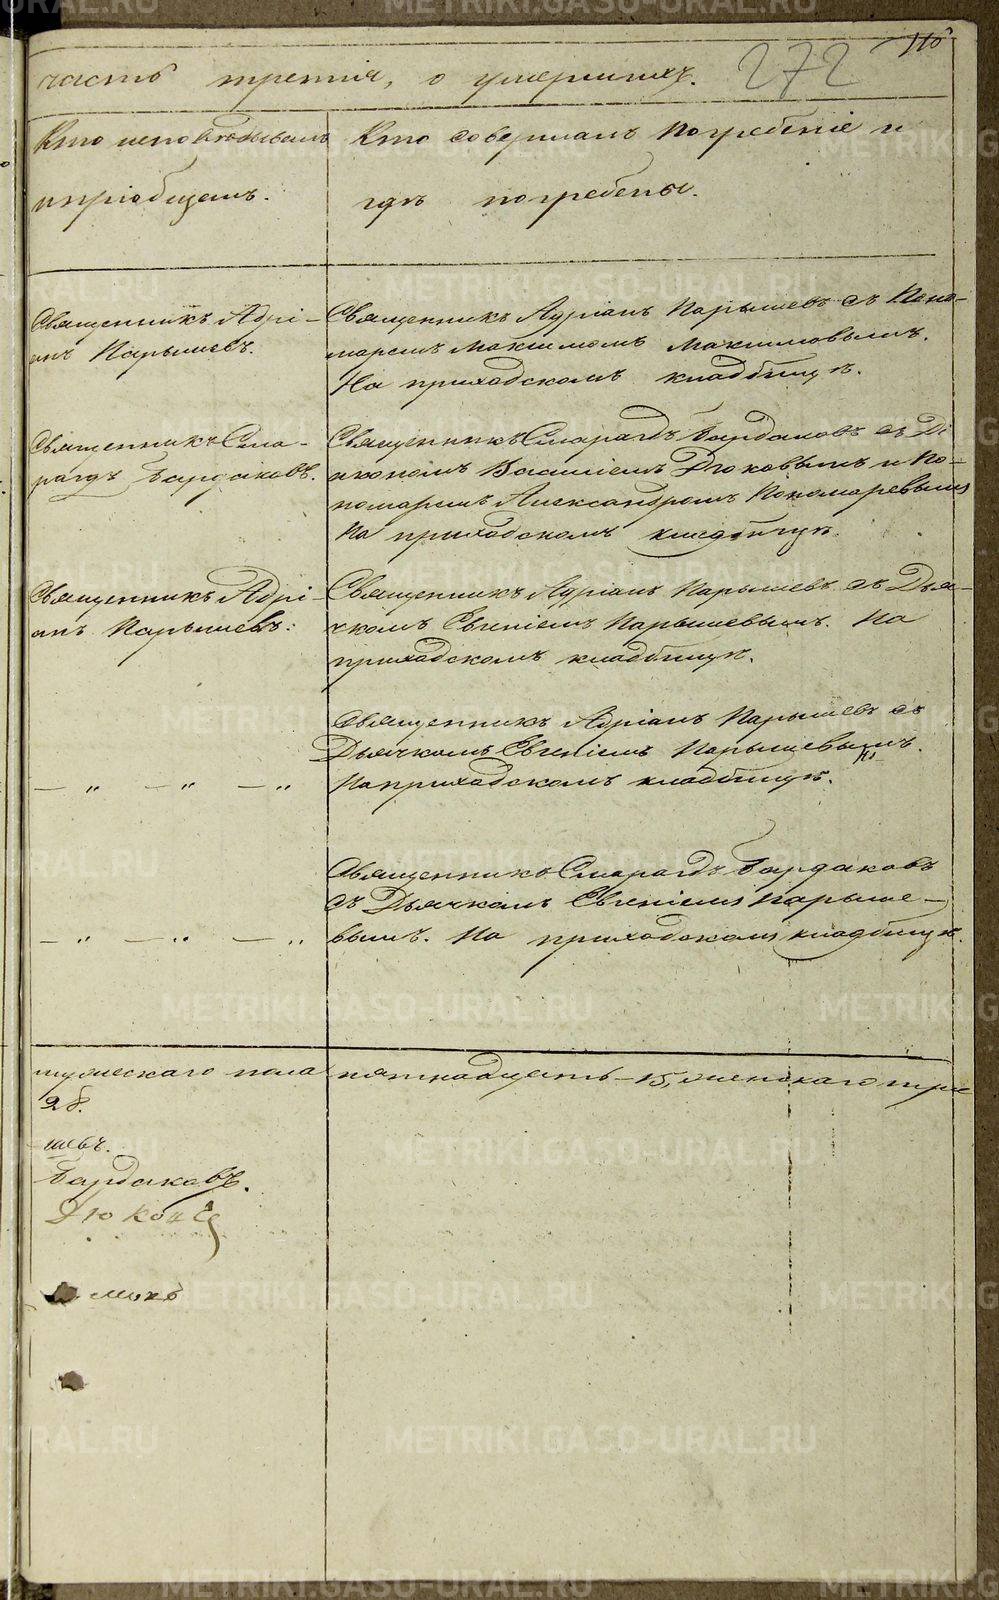 110
272
часть третія, о умершихъ.
Кто исповѣдывалъ
и пріобщалъ.
Кто совершалъ погребеніе и
гдѣ погребены.
Священникъ Адрі-
анъ Парышевъ.
Священникъ Адріанъ Парышевъ съ Поно-
маремъ Максимомъ Максимовымъ.
На приходскомъ кладбищѣ.
Священникъ Сма-
рагдъ Бардаковъ.
Священникъ Смарагдъ Бардаковъ съ Ді
акономъ Василіемъ Дюковымъ и По-
номаремъ Александромъ Пономаревымъ
На приходскомъ кладбищѣ.
Священникъ Адрі-
анъ Парышевъ:
Священникъ Адріанъ Парышевъ съ Дья-
чкомъ Евгеніемъ Парышевымъ. На
приходскомъ кладбищѣ.
— „ — „ — „
Священникъ Адріанъ Парышевъ съ
Дьячкомъ Евгеніемъ Парышевымъ.
На приходскомъ кладбищѣ.
— „ — „ — „
Священникъ Смарагдъ Бардаковъ
съ Дьячкомъ Евгеніемъ Парыше-
вымъ. На приходскомъ кладбищѣ.
мужескаго пола пятнадцать – 15, женскаго три
28.
шевъ.
Бардаковъ.
Дюковъ